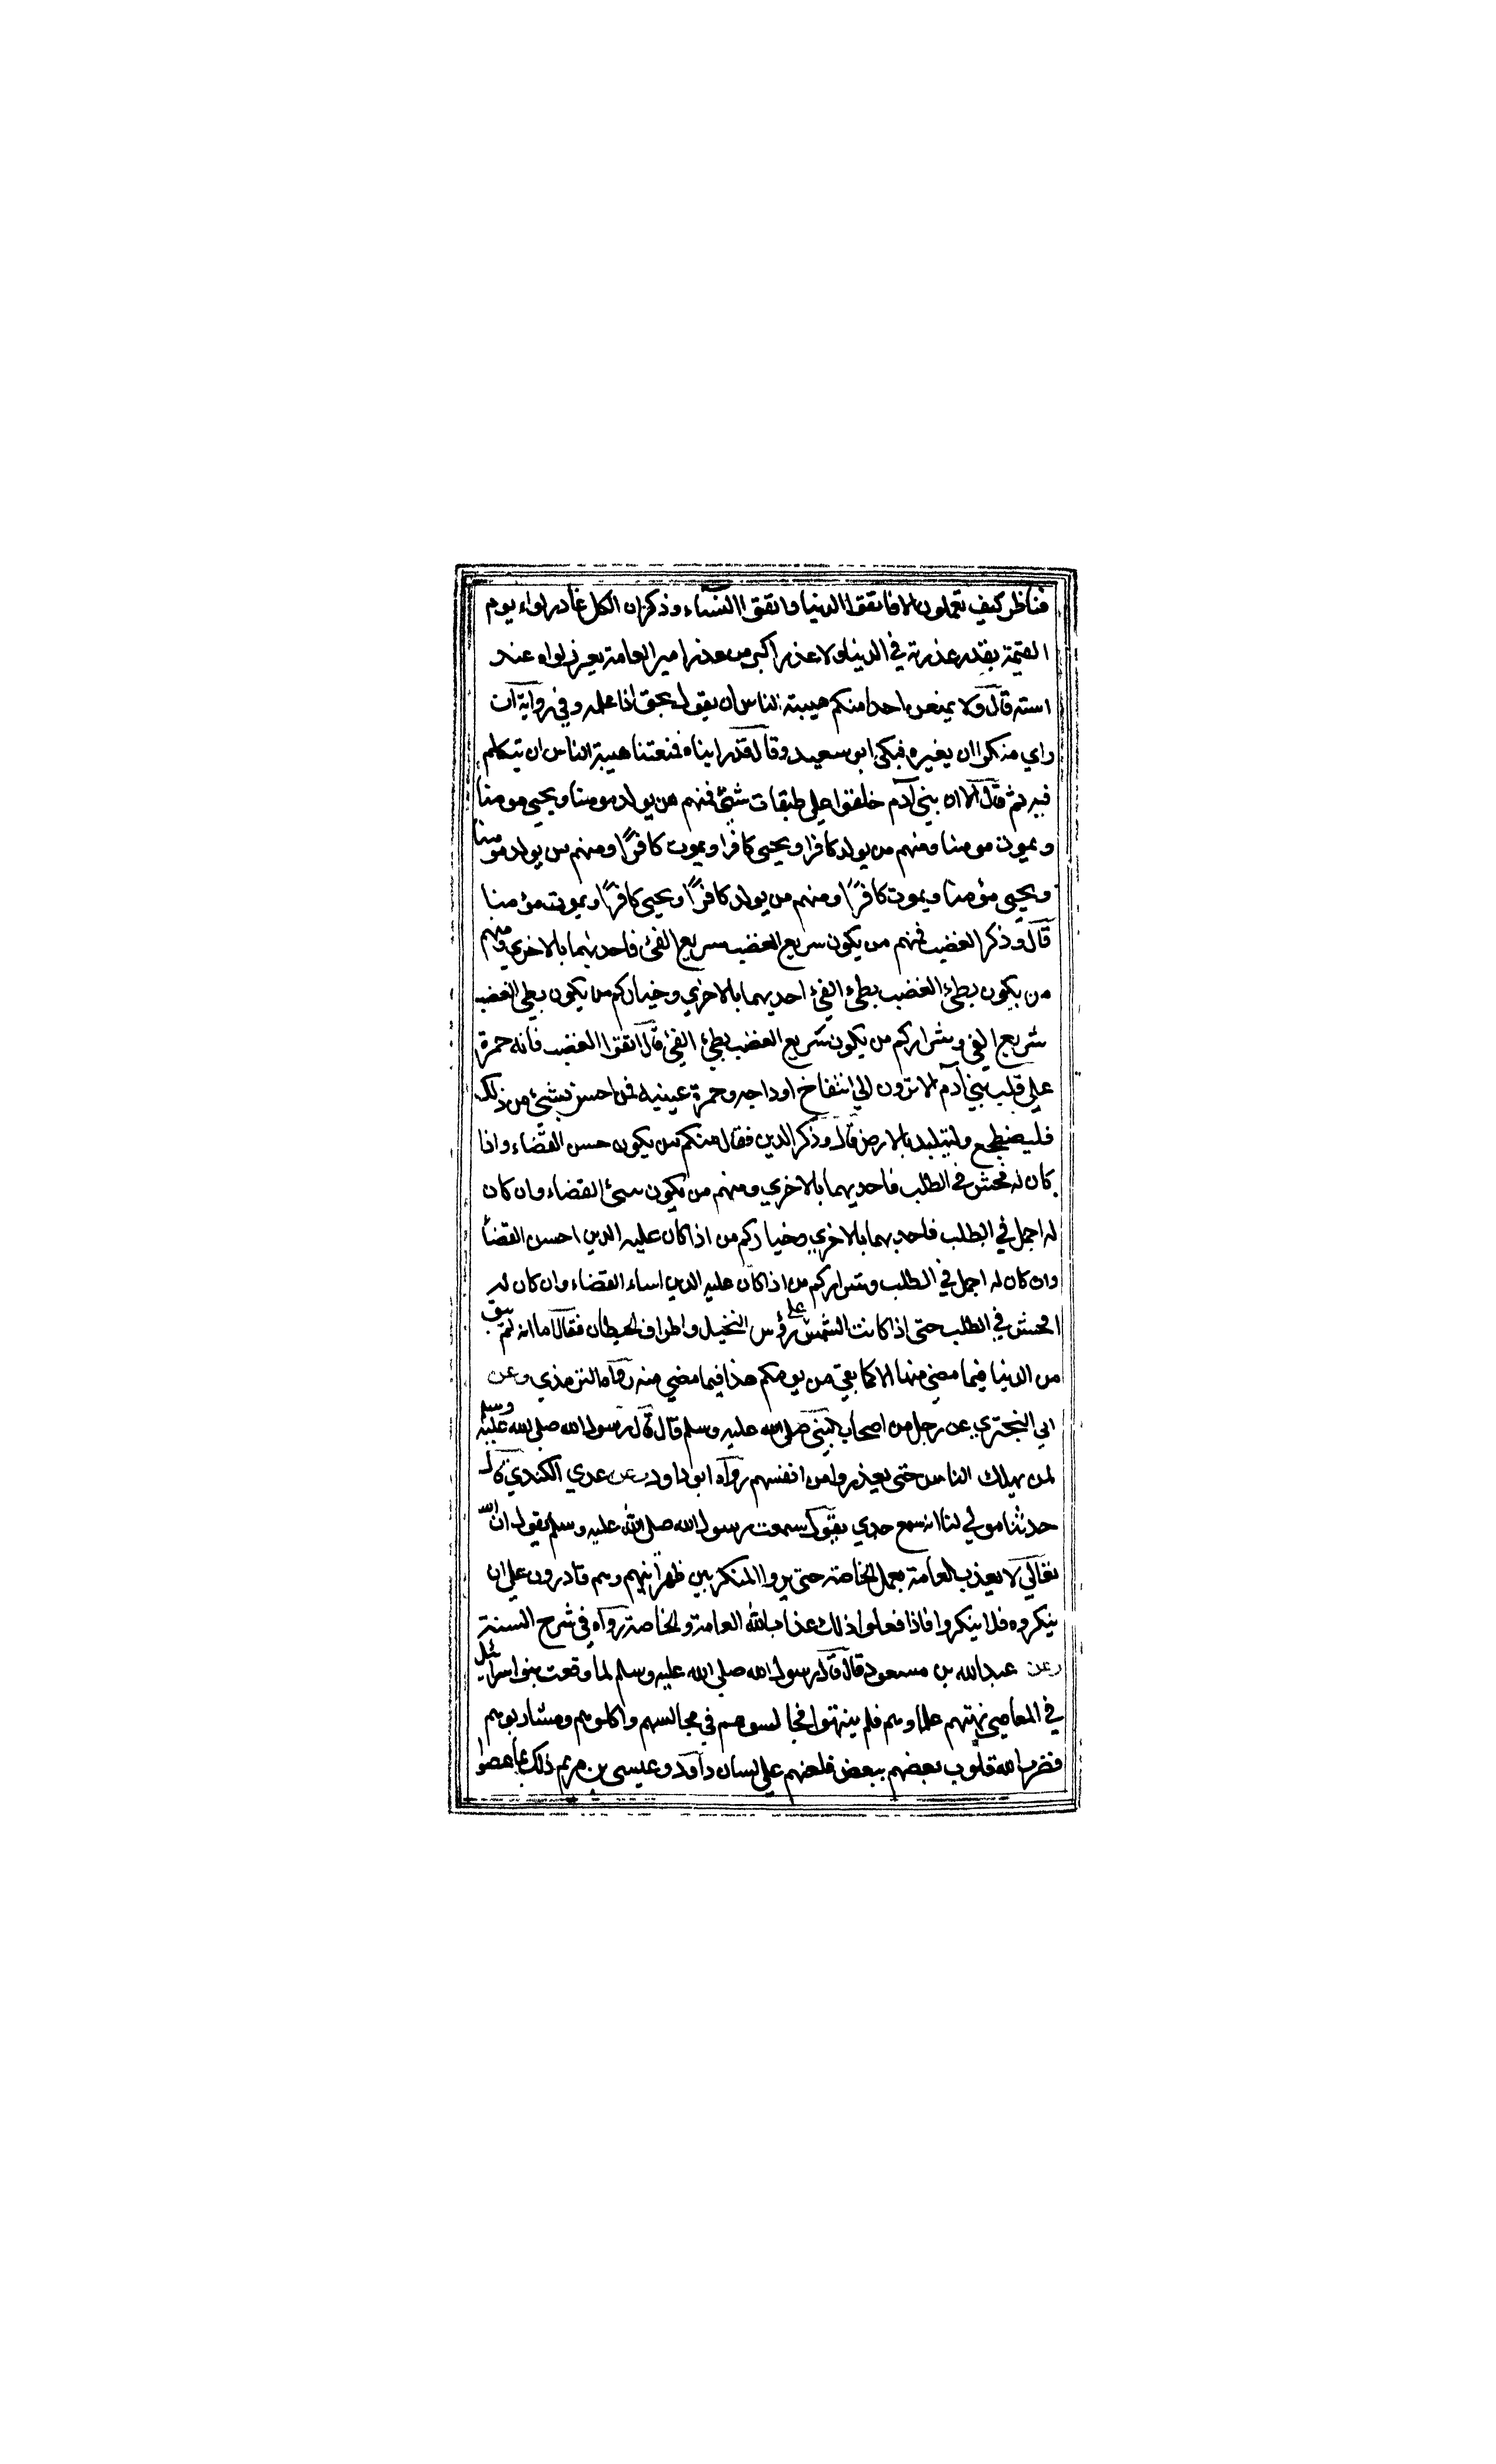 فناظر كيف تعملون الا فاتقوا الدنيا واتقوا النساء وذكر ان لكل غادر لواء يوم
القيمة بقدر غدرته في الدنيا ولا غدر اكبر من غدر امير العامة يغرز لواه عند
استه قال ولا يمنعن احدا منكم هيبة الناس ان يقول بحق اذا علمه وفي رواية ان
راي منكرا ان يغيره فبكى ابو سعيد وقال قد رايناه فمنعتنا هيبة الناس ان نتكلم
فيه ثم قال الا ان بني آدم خلقوا على طبقات شتى فمنهم من يولد مومنا ويحيى مومنا
ويموت مومنا ومنهم من يولد كافرا ويحيى كافرا ويموت كافرًا ومنهم من يولد مومنا
ويحيى مؤمنا ويموت كافرًا ومنهم من يولد كافرًا ويحيى كافرًا ويموت مؤمنا
قال وذكر الغضب فمنهم من يكون سريع الغضب سريع الفئ فاحديهما بالاخري ومنهم
من يكون بطئ الغضب بطئ الفئ احديهما بالاخري وخياركم من يكون بطي الغضب
سريع الفي وشراركم من يكون سريع الغضب بطئ الفئ قال اتقوا الغضب فانه جمرة
علي قلب بني آدم الا ترون الي انتفاخ اوداجه وحمرة عينيه فمن احس بشئ من ذلك
فليضطجع وليتلبد بالارض قال وذكر الدين فقال منكم من يكون حسن القضاء واذا
كان له فحش في الطلب فاحديهما بالاخري ومنهم من يكون سئ القضاء وان كان
له اجمل في الطلب فاحديهما بالاخري وخياركم من اذا كان عليه الدين احسن القضأ
وان كان له اجمل في الطلب وشراركم من اذا كان عليه الدين اساء القضاء وان كان له
افحش في الطلب حتى اذا كانت الشمس على رؤس النخيل واطراف الحيطان فقال اما انه لم يبق
من الدنيا فيما مضى منها الا كما بقي من يومكم هذا فيما مضي منه رواه الترمذي وعن
ابي البختري عن رجل من اصحاب النبي صلى الله عليه وسلم قال قال رسول الله صلى الله عليه وسلم
لن يهلك الناس حتى يعذروا من انفسهم رواه ابو داود وعن عدي الكندي قال
حدثنا مولي لنا انه سمع جدي يقول سمعت رسول الله صلى الله عليه وسلم يقول ان الله
تعالي لا يعذب العامة بعمل الخاصة حتى يروا المنكر بين ظهرانيهم وهم قادرون علي ان
ينكروه فلا ينكروا فاذا فعلوا ذلك عذاب الله العامة والخاصة رواه في شرح السنة
وعن عبد الله بن مسعود قال قال رسول الله صلي الله عليه وسلم لما وقعت بنو اسرائيل
في المعاصي نهتهم علماوهم فلم ينتهوا فجالسوهم في مجالسهم واكلوهم وشاربوهم
فضرب الله قلوب بعضهم ببعض فلعنهم علي لسان داود وعيسى بن مريم ذلك بما عصوا